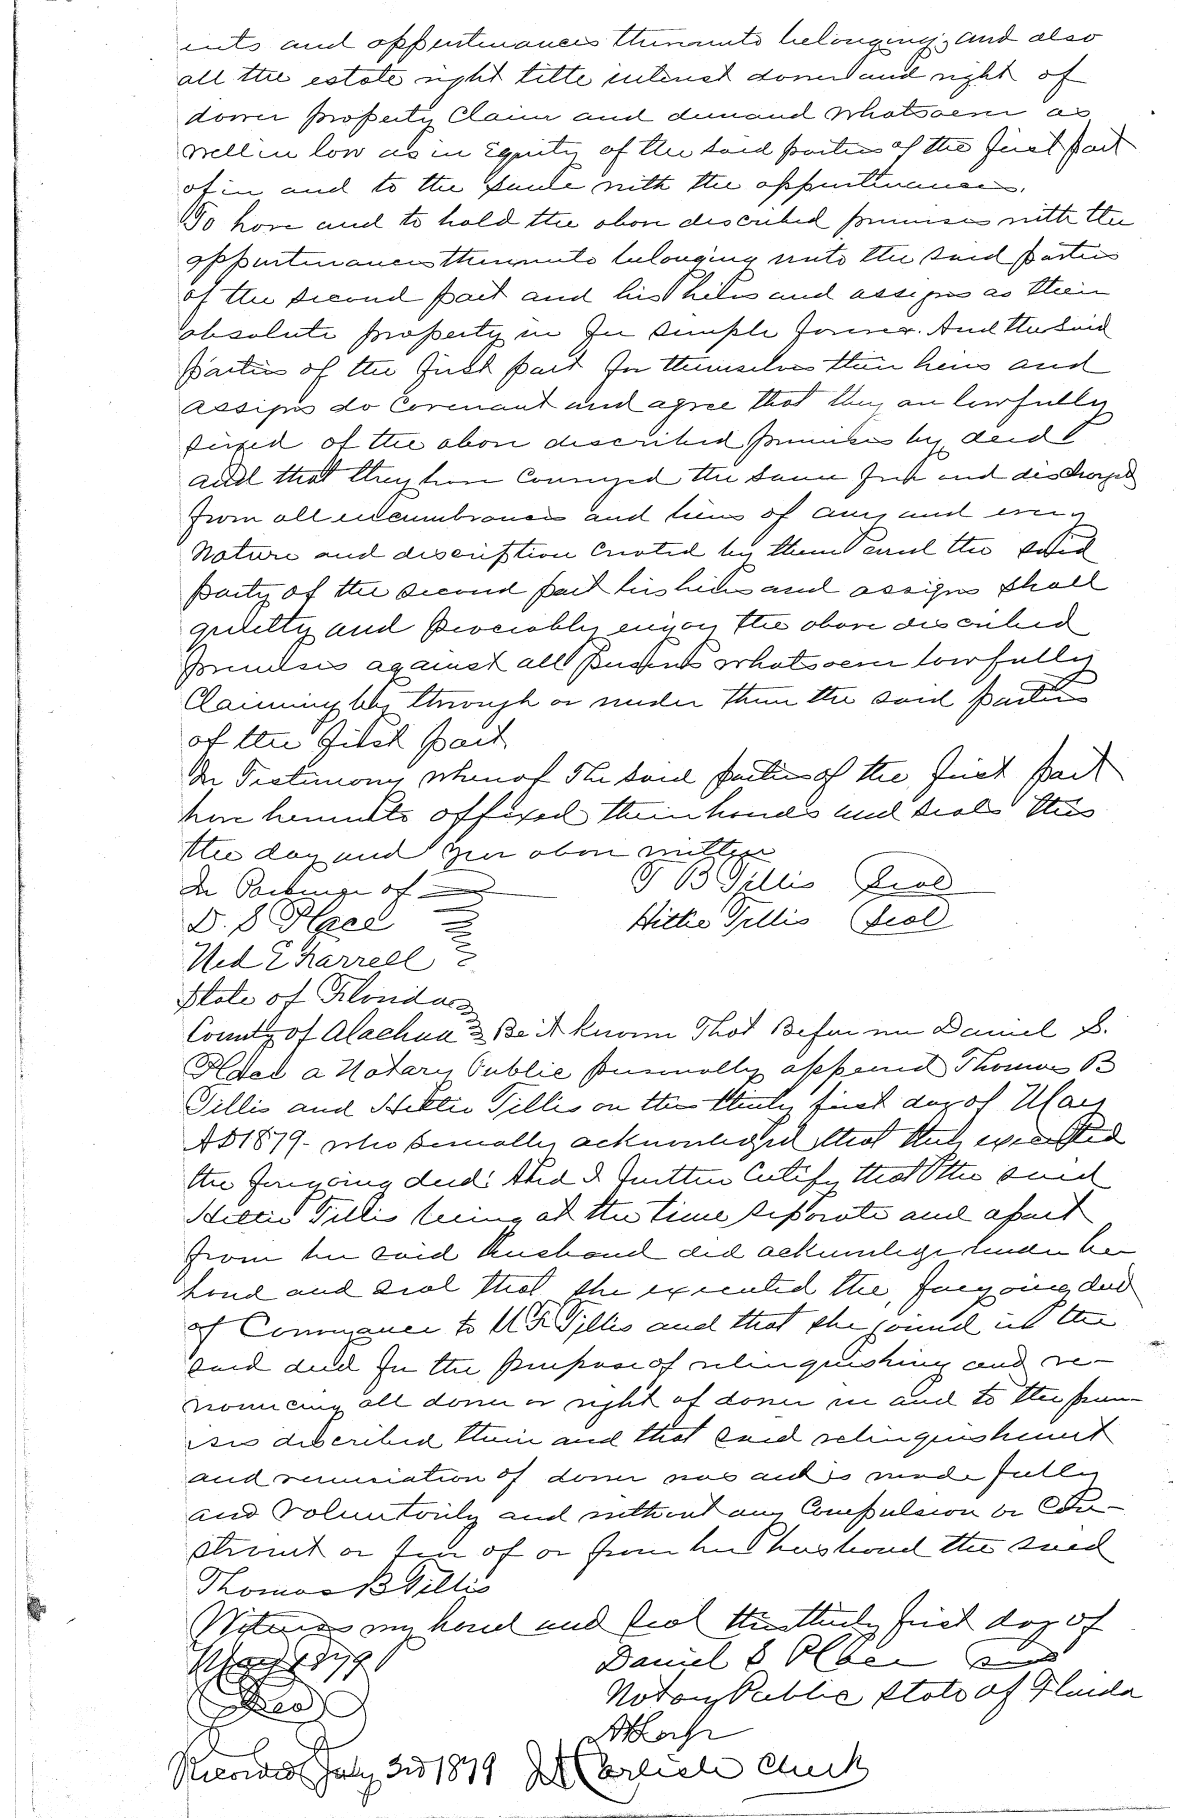 ents and appurtenances thereunto belonging, and also
all the estate right title interest dower and right of
dower property Claim and demand whatsoever as
well in law as in Equity of the said parties of the first part
of in and to the same with the appurtenances.
To have and to hold the above described premises with the
appurtenances thereunto belonging unto the said parties
of the second part and his heirs and assigns as their
absolute property in fee simple forever. And the said
Parties of the first part for themselves their heirs and
assigns do Covenant and agree that they are lawfully
seized of the above described premises by deed
and that they have Conveyed the same free and discharged
from all encumbrances and liens of any and every
Nature and discription Created by them and the said
party of the second part his heirs and assigns shall
quietly and peaceably enjoy the above discribed
premises against all persons whatsoever lawfully
Claiming by through or under them the said parties
of the first part
In Testimony whereof The said parties of the first part
have hereunto affixed their hands and seals this
the day and year above written
In Presence of T B Tillis Seal
D. S Place Hittie Tillis Seal
Ned E Farrell
State of Florida
County of Alachua Be it known That Before me Daniel S.
Place a Notary Public personally appeared Thomas B
Tillis and Hittie Tillis on this thirty first day of May
AD 1879 - who severally acknowledged that they executed
the foregoing deed: And I further Certify that the said
Hittie Tillis being at the time separate and apart
from her said husband did acknowledge under her
hand and seal that she executed the foregoing deed
of Conveyance to M F Tillis and that she joined in the
said deed for the purpose of relinquishing and re-
nouncing all dower or right of dower in and to the prem-
ises described therein and that said relinquishment
and renunciation of dower was and is made fully
and Voluntarily and without any Compulsion or Con-
straint or fear of or from her husband the said
Thomas B Tillis
Witness my hand and seal this thirty first day of
May 1879 Daniel S Place
Notary Public State of Florida
Seal
Recorded July 3rd 1879 Clerk